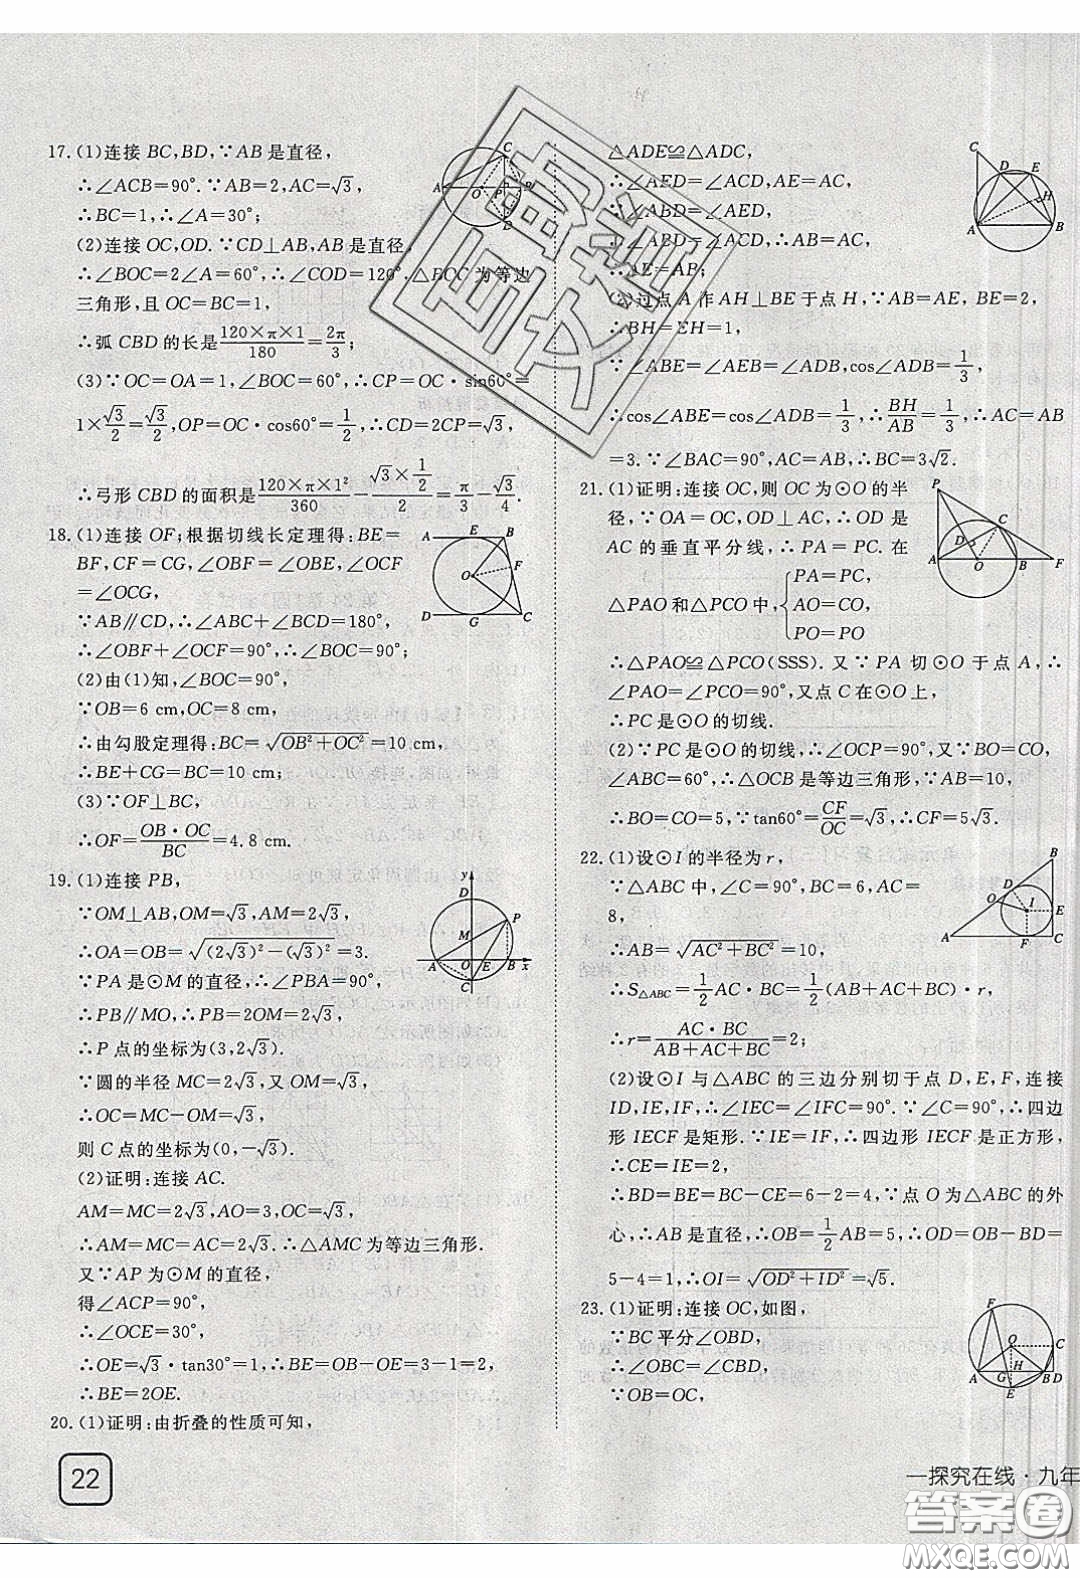 17. (1)连接 BC,BD,∵AB 是直径,
∴∠ACB=90°. ∵AB=2,AC=√3,
∴BC=1,∴∠A=30°;
(2)连接 OC,OD. ∵CD⊥AB,AB 是直径,
∴∠BOC=2∠A=60°,∴∠COD=120°,△BOC 为等边
三角形,且 OC=BC=1,
∴弧 CBD 的长是 120×π×1/180=2π/3;
(3)∵OC=OA=1,∠BOC=60°,∴CP=OC·sin60°=
1×√3/2=√3/2,OP=OC·cos60°=1/2,∴CD=2CP=√3,
∴弓形 CBD 的面积是 120×π×1²/360 − (√3×1/2)/2=π/3−√3/4.
18. (1)连接 OF;根据切线长定理得:BE=
BF,CF=CG,∠OBF=∠OBE,∠OCF
=∠OCG,
∵AB∥CD,∴∠ABC+∠BCD=180°,
∴∠OBF+∠OCF=90°,∴∠BOC=90°;
(2)由(1)知,∠BOC=90°,
∵OB=6 cm,OC=8 cm,
∴由勾股定理得:BC=√(OB²+OC²)=10 cm,
∴BE+CG=BC=10 cm;
(3)∵OF⊥BC,
∴OF=OB·OC/BC=4.8 cm.
19. (1)连接 PB,
∵OM⊥AB,OM=√3,AM=2√3,
∴OA=OB=√((2√3)²−(√3)²)=3.
∵PA 是⊙M 的直径,∴∠PBA=90°.
∴PB∥MO,∴PB=2OM=2√3,
∴P 点的坐标为(3,2√3).
∵圆的半径 MC=2√3,又 OM=√3,
∴OC=MC−OM=√3,
则 C 点的坐标为(0,−√3).
(2)证明:连接 AC.
AM=MC=2√3,AO=3,OC=√3,
∴AM=MC=AC=2√3.∴△AMC 为等边三角形.
又∵AP 为⊙M 的直径,
得∠ACP=90°,
∴∠OCE=30°,
∴OE=√3·tan30°=1,∴BE=OB−OE=3−1=2,
∴BE=2OE.
20. (1)证明:由折叠的性质可知,
22
△ADE≌△ADC,
∴∠AED=∠ACD,AE=AC,
∵∠ABD=∠AED,
∴AE=AB;
(2)过点 A 作 AH⊥BE 于点 H,∵AB=AE,BE=2,
∴BH=EH=1,
∵∠ABE=∠AEB=∠ADB,cos∠ADB=1/3,
∴cos∠ABE=cos∠ADB=1/3,∴BH/AB=1/3,∴AC=AB
=3. ∵∠BAC=90°,AC=AB,∴BC=3√2.
21. (1)证明:连接 OC,则 OC 为⊙O 的半
径,∵OA=OC,OD⊥AC,∴OD 是
AC 的垂直平分线,∴PA=PC. 在
△PAO 和△PCO 中, { PA=PC, AO=CO, PO=PO
∴△PAO≌△PCO(SSS). 又∵PA 切⊙O 于点 A,∴
∠PAO=∠PCO=90°,又点 C 在⊙O 上,
∴PC 是⊙O 的切线.
(2)∵PC 是⊙O 的切线,∴∠OCP=90°,又∵BO=CO,
∠ABC=60°,∴△OCB 是等边三角形,∵AB=10,
∴BO=CO=5,∵tan60°=CF/OC=√3,∴CF=5√3.
22. (1)设⊙I 的半径为 r,
∵△ABC 中,∠C=90°,BC=6,AC=
8,
∴AB=√(AC²+BC²)=10,
∴S△ABC=1/2AC·BC=1/2(AB+AC+BC)·r,
∴r=AC·BC/(AB+AC+BC)=2;
(2)设⊙I 与△ABC 的三边分别切于点 D,E,F,连接
ID,IE,IF,∴∠IEC=∠IFC=90°. ∵∠C=90°,∴四边
形 IECF 是矩形. ∵IE=IF,∴四边形 IECF 是正方形,
∴CE=IE=2,
∴BD=BE=BC−CE=6−2=4,∵点 O 为△ABC 的外
心,∴AB 是直径,∴OB=1/2AB=5,∴OD=OB−BD=
5−4=1,∴OI=√(OD²+ID²)=√5.
23. (1)证明:连接 OC,如图,
∵BC 平分∠OBD,
∴∠OBC=∠CBD,
∵OB=OC,
一探究在线·九年
答案圈
MXQE.COM